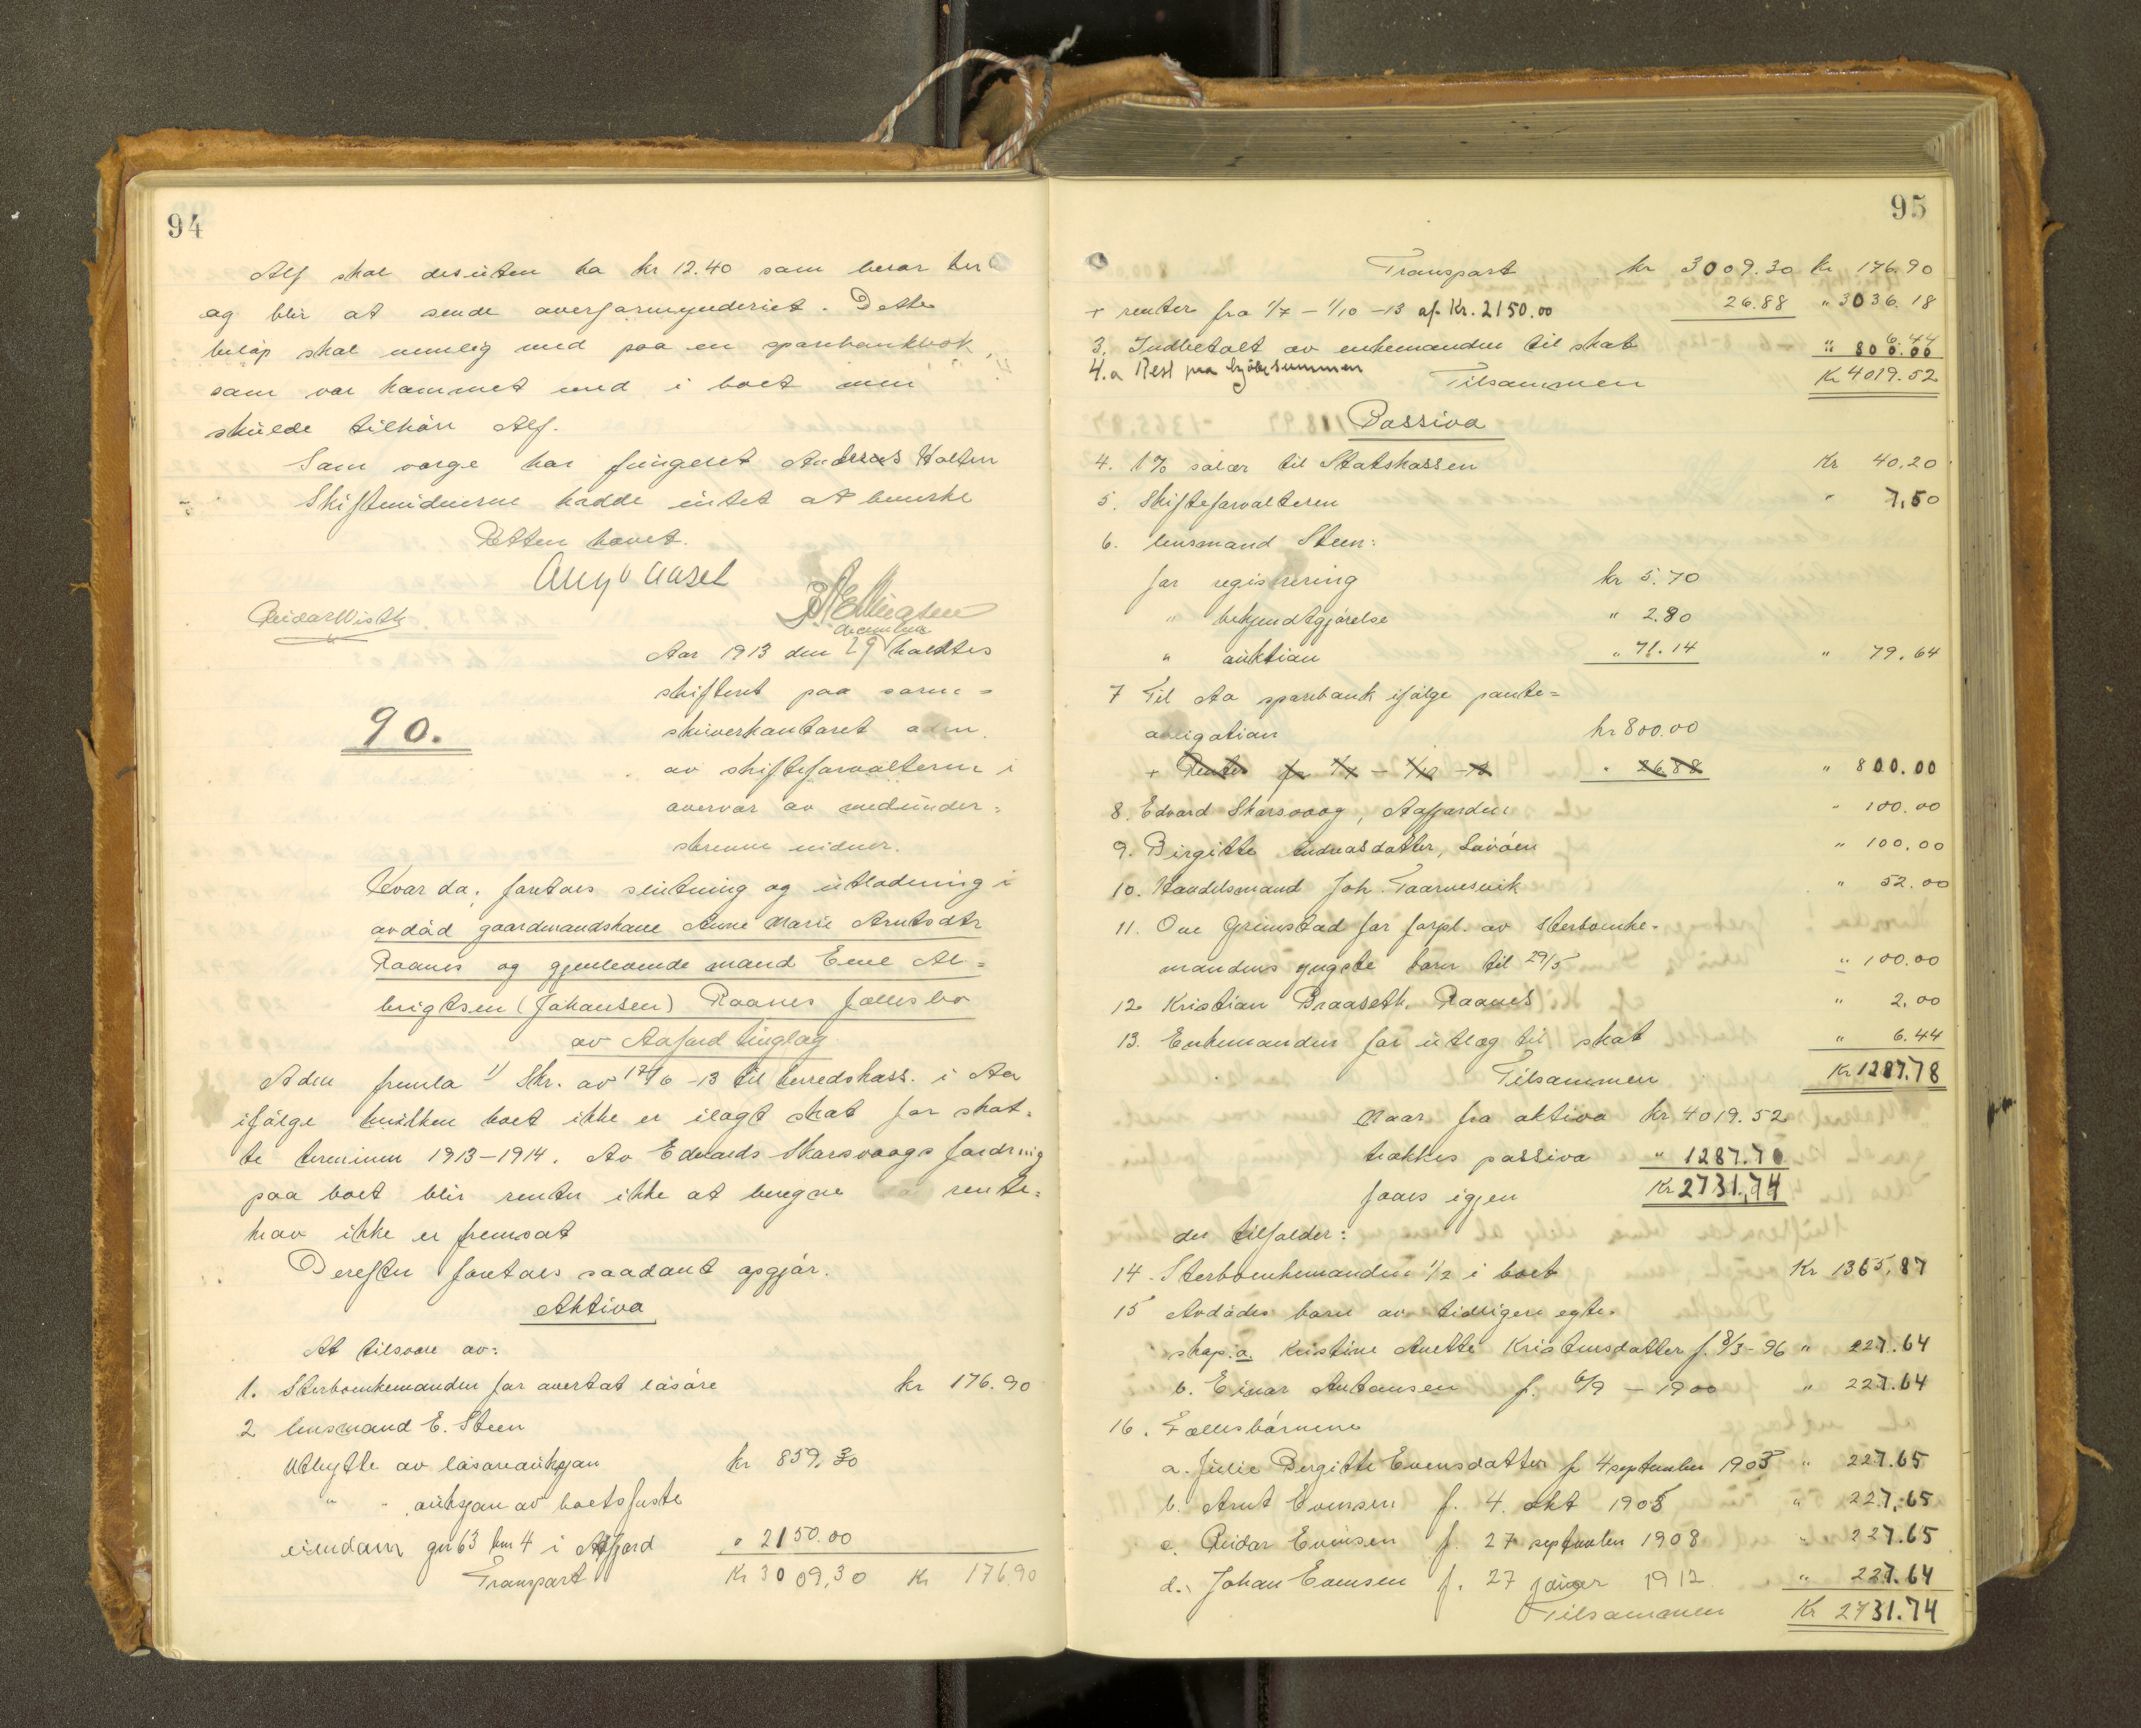 94
Alf skal desuten ha kr 12.40 som beror her
og blir at sende overformynderiet. Dette
beløp skal nemlig med paa en sparebankbok,
som var kommet med i boet men
skulde tilhøre Alf.
Som verge har fungeret Andreas Holten
Skiftevidnerne hadde intet at bemerke
Retten hævet.
Reidar Wisth
december
Aar 1913 den 29 holdtes
skifteret paa soren=
skriverkontoret adm.
90.
av skifteforvalteren i
overvær av medunder=
skrevne vidner.
Hvorda: foretoes slutning og utlodning i
avdød gaardmandskone Anne Marie Arntsdtr
Raanes og gjenlevende mand Even Al=
brigtsen (Johansen) Raanes fællesbo
av Aafjord tinglag.
Adm fremla 1) Skr. av 17/6 -13 til herredskass. i Aa
ifølge hvilken boet ikke er ilagt skat for skat=
te terminen 1913-1914. Av Edvards Skarsvaags fordring
paa boet blir renter ikke at beregne da rente=
krav ikke er fremsat
Derefter foretoes saadant opgjør.
Aktiva
At tilsvare av:
1. Sterboenkemanden for overtat løsøre kr 176.90
2 lensmand E. Steen
Utbytte av løsøreauksjon kr 859.30
" " auksjon av boets faste
eiendom gn 63 bn 4 i Aafjord " 2150.00
Transport Kr 3009,30 Kr 176.90
95
Transport kr 3009.30 Kr 176.90
+ renter fra 1/7 - 1/10 -13 af Kr. 2150.00 26.88 " 3036.18
3. Indbetalt av enkemanden til skat 6.44
4.a Rest paa kjøbesummen " 800.00
Tilsammen Kr 4019.52
Passiva
4. 1% salær til Statskassen Kr 40.20
5. Skifteforvalteren " 7,50
6. lensmand Steen:
for registrering kr 5.70
" bekjendtgjørelse " 2.80
" auktion " 71.14 " 79.64
7 Til Aa sparebank ifølge pante=
obligation kr 800.00
+ Renter fr 1/7 - 1/10 -13 " 26.88 " 800.00
8. Edvard Skarsvaag, Aafjorden " 100.00
9. Birgitte Andreasdatter, Lauvøen " 100.00
10. Handelsmand Joh. Taarnesvik " 52.00
11. Ove Grimstad for forpl. av sterboenke-
mandens yngste barn til 29/5 " 100.00
12 Kristian Braaseth, Raanes " 2,00
13. Enkemanden for utlæg til skat " 6.44
Tilsammen Kr 1287.78
Naar fra aktiva kr 4019.52
trækkes passiva " 1287.78
faaes igjen Kr 2731,74
der tilfalder:
14. Sterboenkemanden 1/2 i boet Kr 1365,87
15 Avdødes barn av tidligere egte-
skap: a. Kristine Anette Kristensdatter f. 8/3-96 " 227.64
b. Einar Antonsen f. 6/9 - 1900 " 227.64
16. Fællesbørnene
a. Julie Bergitte Evensdatter f 4 september 1903 " 227.65
b. Arnt Evensen f. 4. okt 1905 " 227,65
c. Reidar Evensen f. 27 september 1908 " 227.65
d. Johan Evensen f. 27 januar 1912 " 227.64
Tilsammen Kr 2731.74